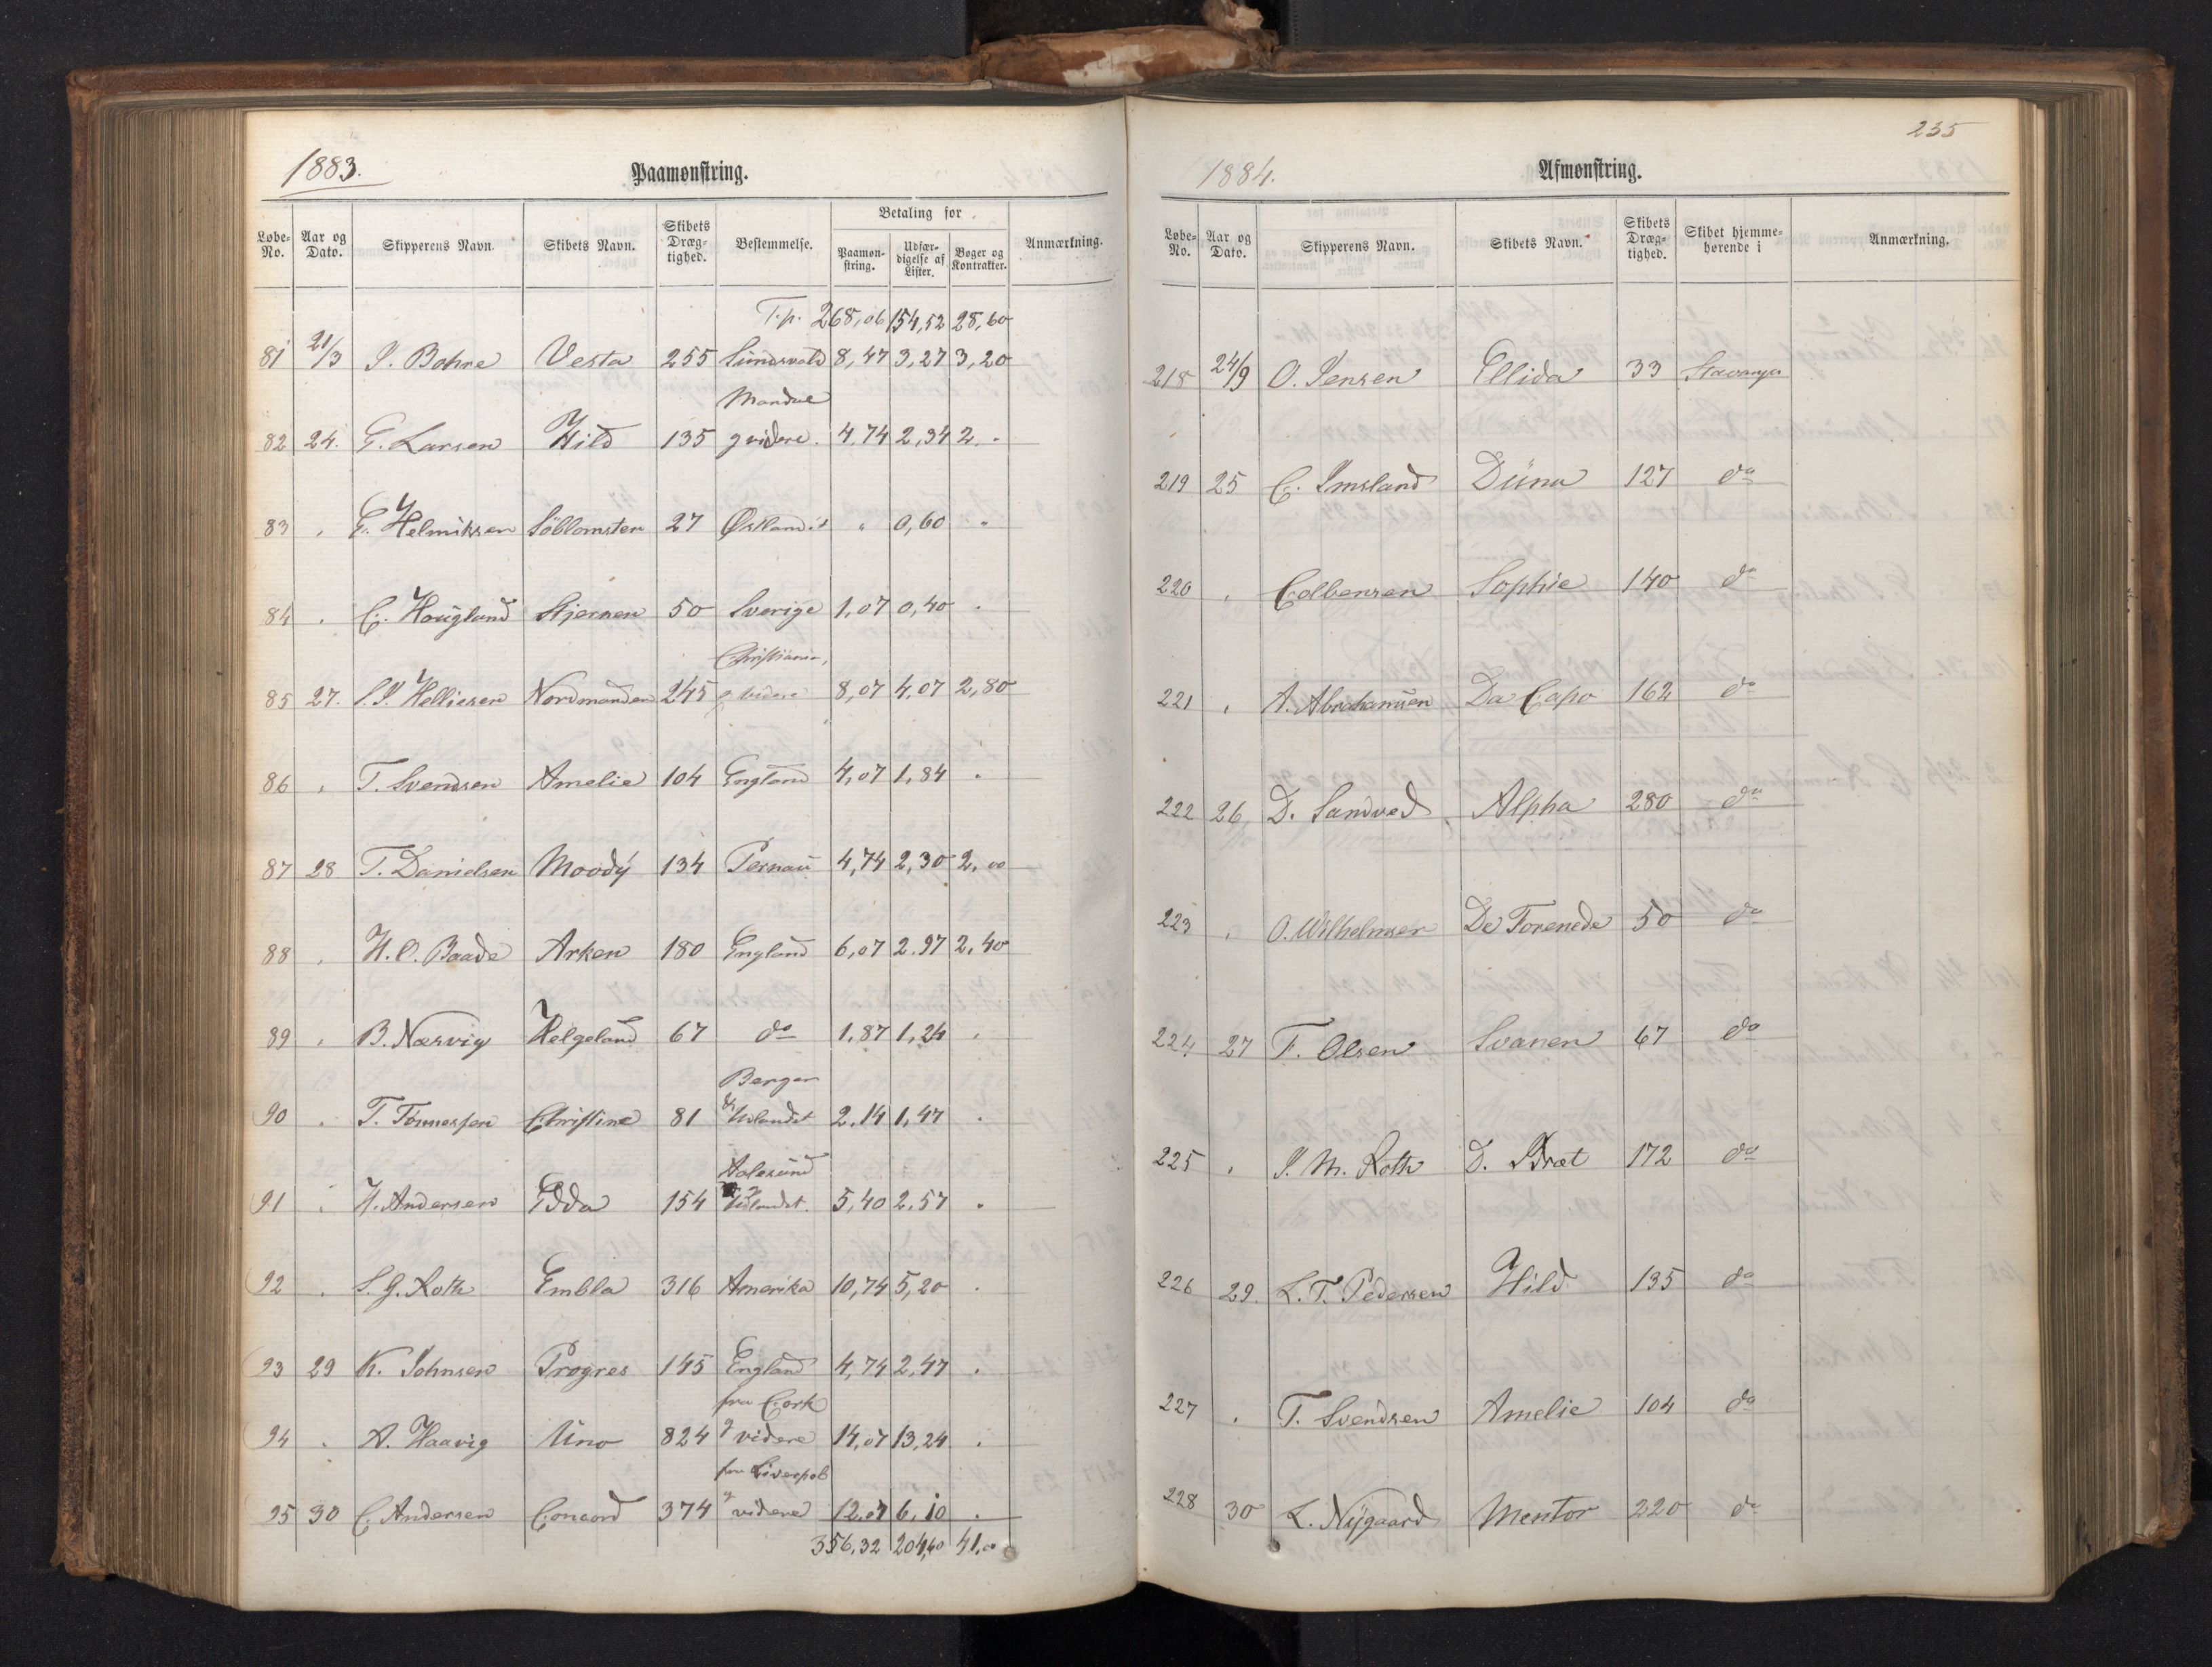 1883.
Paamonstring.
Løbe-No. Aar og Dato. Skipperens Navn. Skibets Navn. Skibets Dræg-tighed. Bestemmelse. Betaling for Paamon-string. Udfær-digelse af Lister. Bøger og Kontrakter. Anmærkning.
T.p. 268,06 154,52 28,60
81 21/3 J. Bohre Vesta 255 Sundsvald 8,47 3,27 3,20
Mandal
82 24. G. Larsen Hild 135 g videre. 4,74 2,34 2.-
83 " G. Helmiksen Söblomsten 27 Østlandet " 0,60 "
84 " C. Hougland Stjernen 50 Sverige 1,07 0,40 "
Christiania,
85 27. Helliesen Nordmanden 245 g videre 8,07 4,07 2,80
86 " T. Svendsen Amelie 104 England 4,07 1,84 "
87 28 T. Danielsen Moody 134 Pernau 4,74 2,30 2,00
88 " H.C. Baade Arken 180 England 6,07 2.97 2,40
89 " B. Næsvig Helgeland 67 do 1,87 1,24 "
Bergen
90 " T. Tönnesen Christine 81 Udlandet 2,14 1,47 "
Aalesund
91 " H. Andersen Edda 154 g Udlandet. 5,40 2,57 "
92 " S. G. Roth Embla 316 Amerika 10,74 5,20 "
93 29 K. Johnsen Progres 145 England 4,74 2,47 "
fra Cork
94 " A. Haavig Uno 824 g videre 14,07 13,24 "
fra Liverpol
95 30 C. Andersen Concord 374 g videre 12,07 6,10 "
356,32 204,60 41,00
235
1884.
Afmonstring.
Løbe-No. Aar og Dato. Skipperens Navn. Skibets Navn. Skibets Dræg-tighed. Skibet hjemme-hørende i Anmærkning.
218 24/9 O. Jensen Ellida 33 Stavanger
219 25 C. Imsland Düna 127 do
220 " Colbensen Sophie 140 do
221 " A. Abrahamsen Da Capo 162 do
222 26 D. Sandved Alpha 280 do
223 " O. Wilhelmsen De Forenede 50 do
224 27 F. Olsen Svanen 67 do
225 " J. M. Roth D. Bræt 172 do
226 29. L. T. Pedersen Hild 135 do
227 " T. Svendsen Amelie 104 do
228 30 L. Nygaard Mentor 220 do